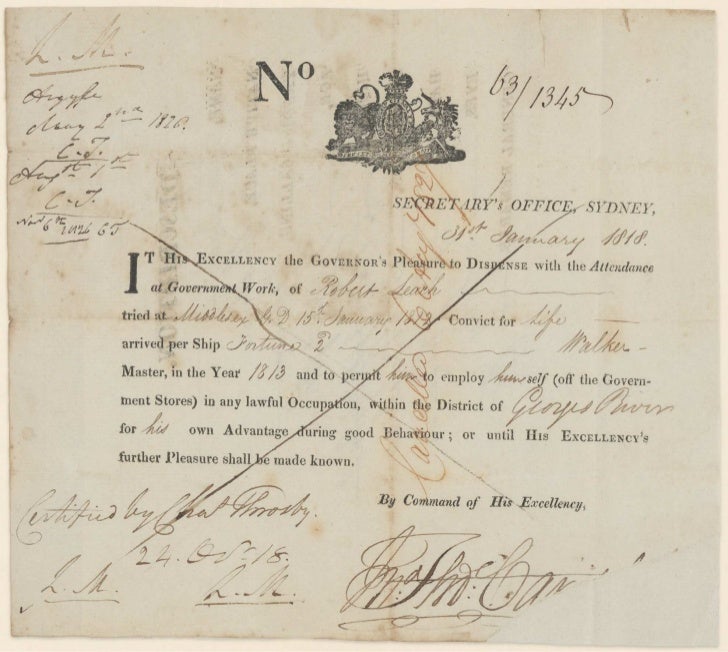 L. M.
Argyle
May 2nd 1820.
C. T.
Augst 1st
C. T.
Novr 6th 1826 CT
No 63/1345
SECRETARY's OFFICE, SYDNEY,
31st January 1818.
IT HIS EXCELLENCY the GOVERNOR's Pleasure to DISPENSE with the Attendance
at Government Work, of Robert Leach
tried at Middlesex G D 15th January 1812 Convict for Life
arrived per Ship Fortune 2 Walker
Master, in the Year 1813 and to permit him to employ himself (off the Govern-
ment Stores) in any lawful Occupation, within the District of Georges River
for his own Advantage during good Behaviour; or until HIS EXCELLENCY's
further Pleasure shall be made known.
By Command of His Excellency,
Certified by Chas Throsby.
24. Oct. 18.
L. M. L. M.
Cancelled